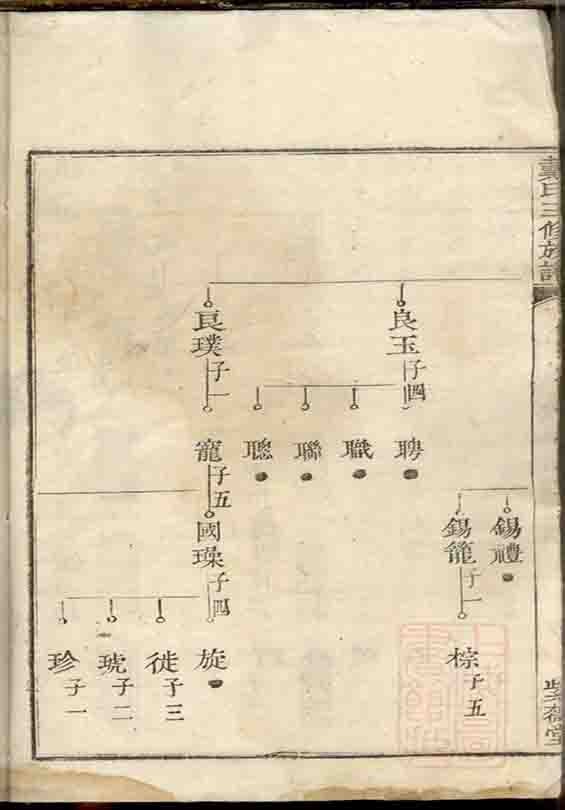 戴氏三修族譜
紫荷堂
錫禮
錫籠子一
棕子五
良玉子四
聘
職
聯
聰
良璞子一
寵子五
國璪子四
旋
徙子三
琥子二
珍子一